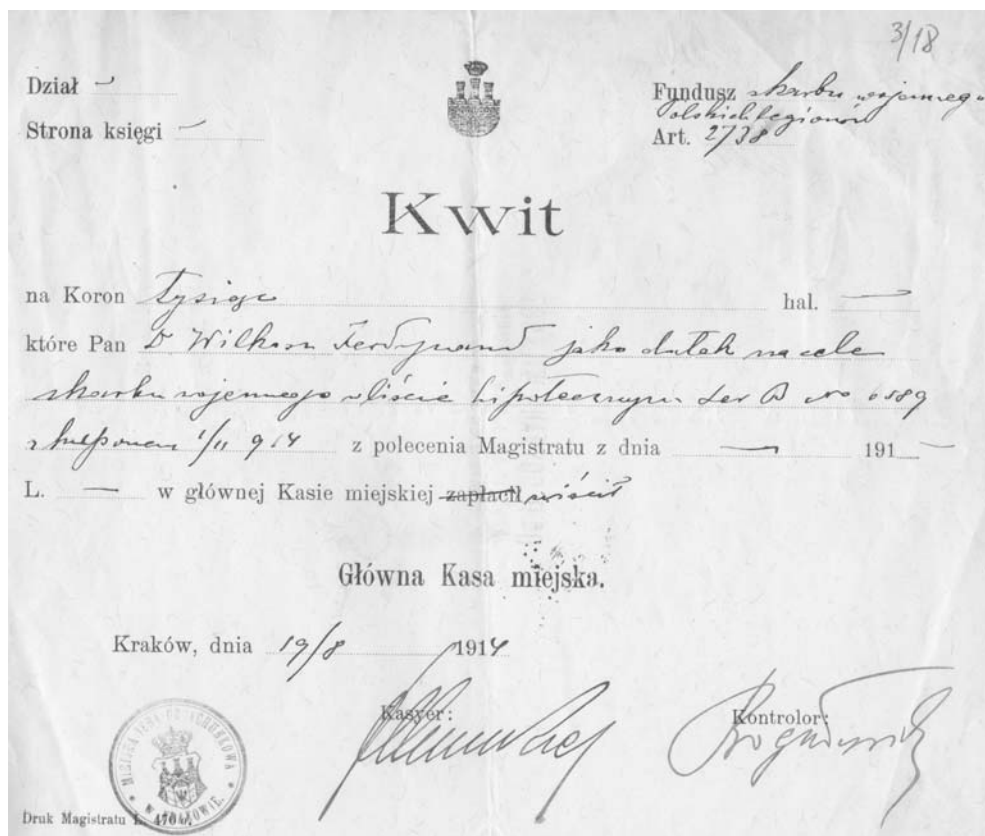 3/18
Dział
Fundusz skarbu wojennego
Polskich Legionów
Strona księgi
Art. 2738
Kwit
na Koron Tysiąc hal. —
które Pan Dr Wilkosz Ferdynand jako datek na cele
skarbu wojennego w liście hipotecznym Ser B No 6589
z kuponem 1/11 914 z polecenia Magistratu z dnia — 191
L. — w głównej Kasie miejskiej zapłacił uiścił
Główna Kasa miejska.
Kraków, dnia 19/8 1914
Kasyer:
Kontrolor:
MIEJSKA IZBA OBRACHUNKOWA
W KRAKOWIE.
Druk Magistratu L.